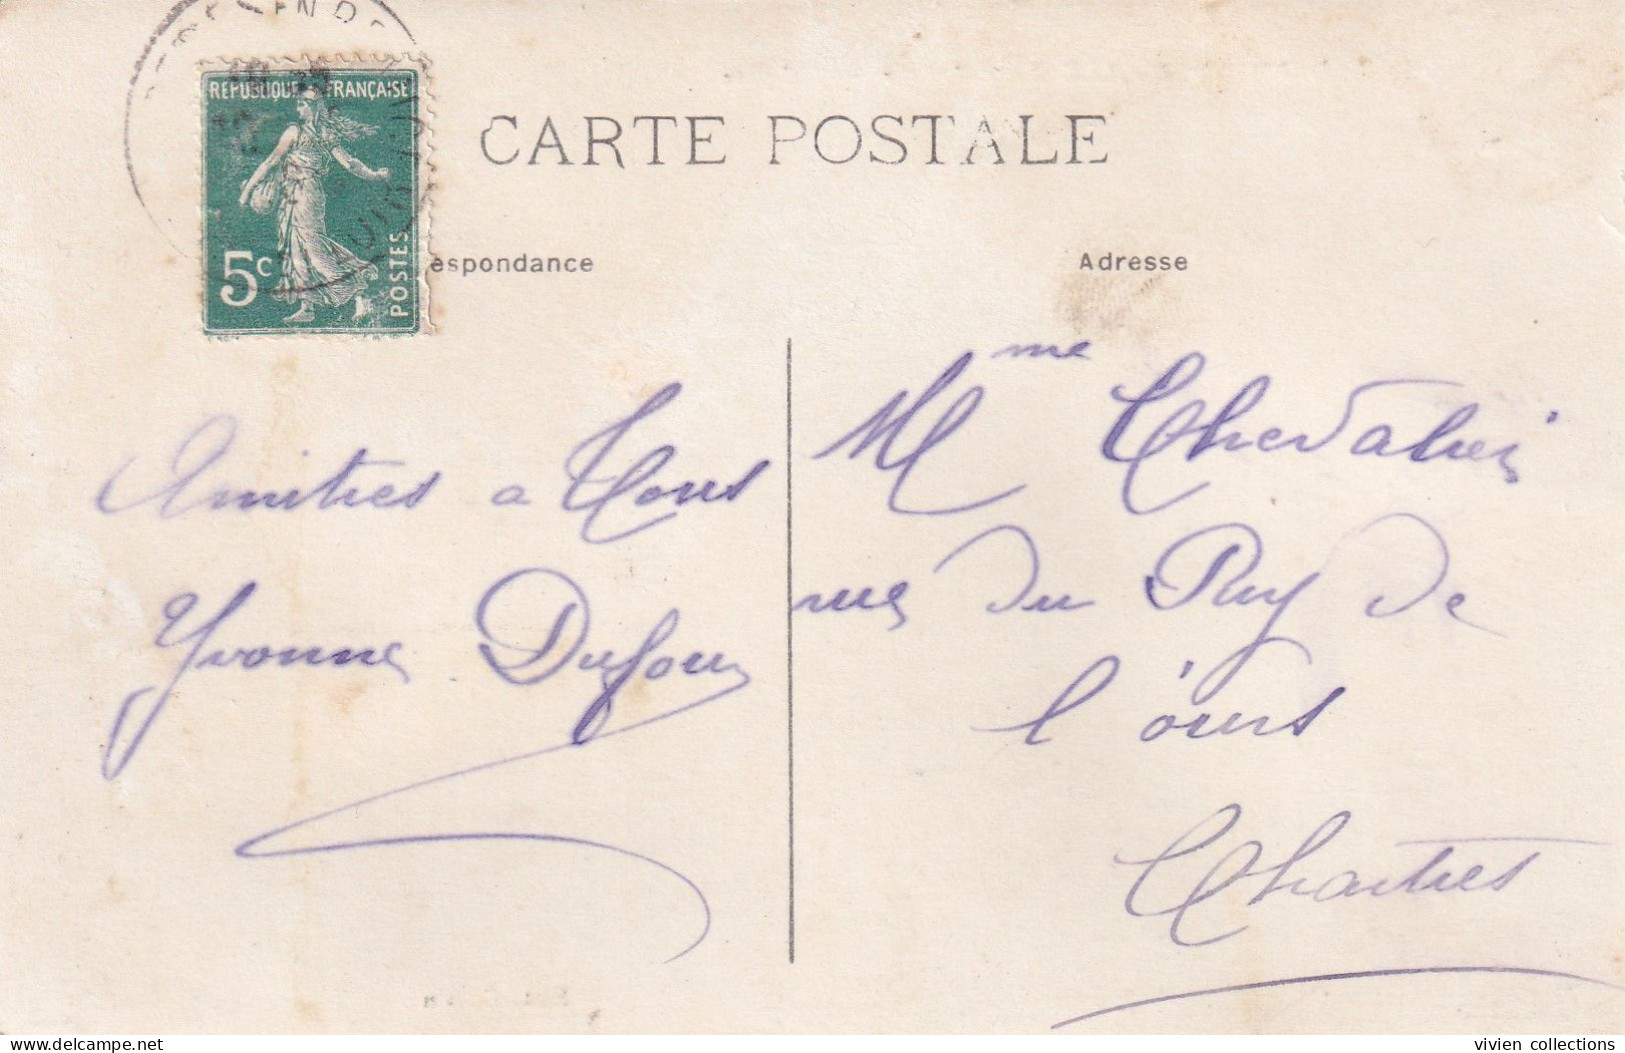 RÉPUBLIQUE FRANÇAISE
5c
POSTES
CARTE POSTALE
espondance
Adresse
Amities a Tous
Yvonne Dufour
Mme Chevalier
rue du Puy de
l'ours
Chartres
vivien collections